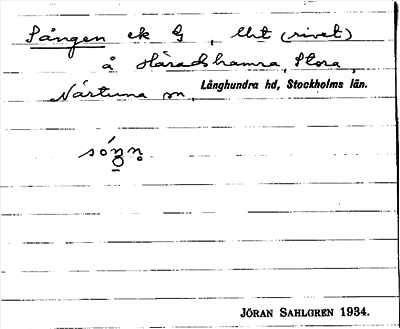 Sången ek G, Urt (rivet)
å Häradshamra, Stora,
Närtuna sn, Långhundra hd, Stockholms län.
JÖRAN SAHLGREN 1934.